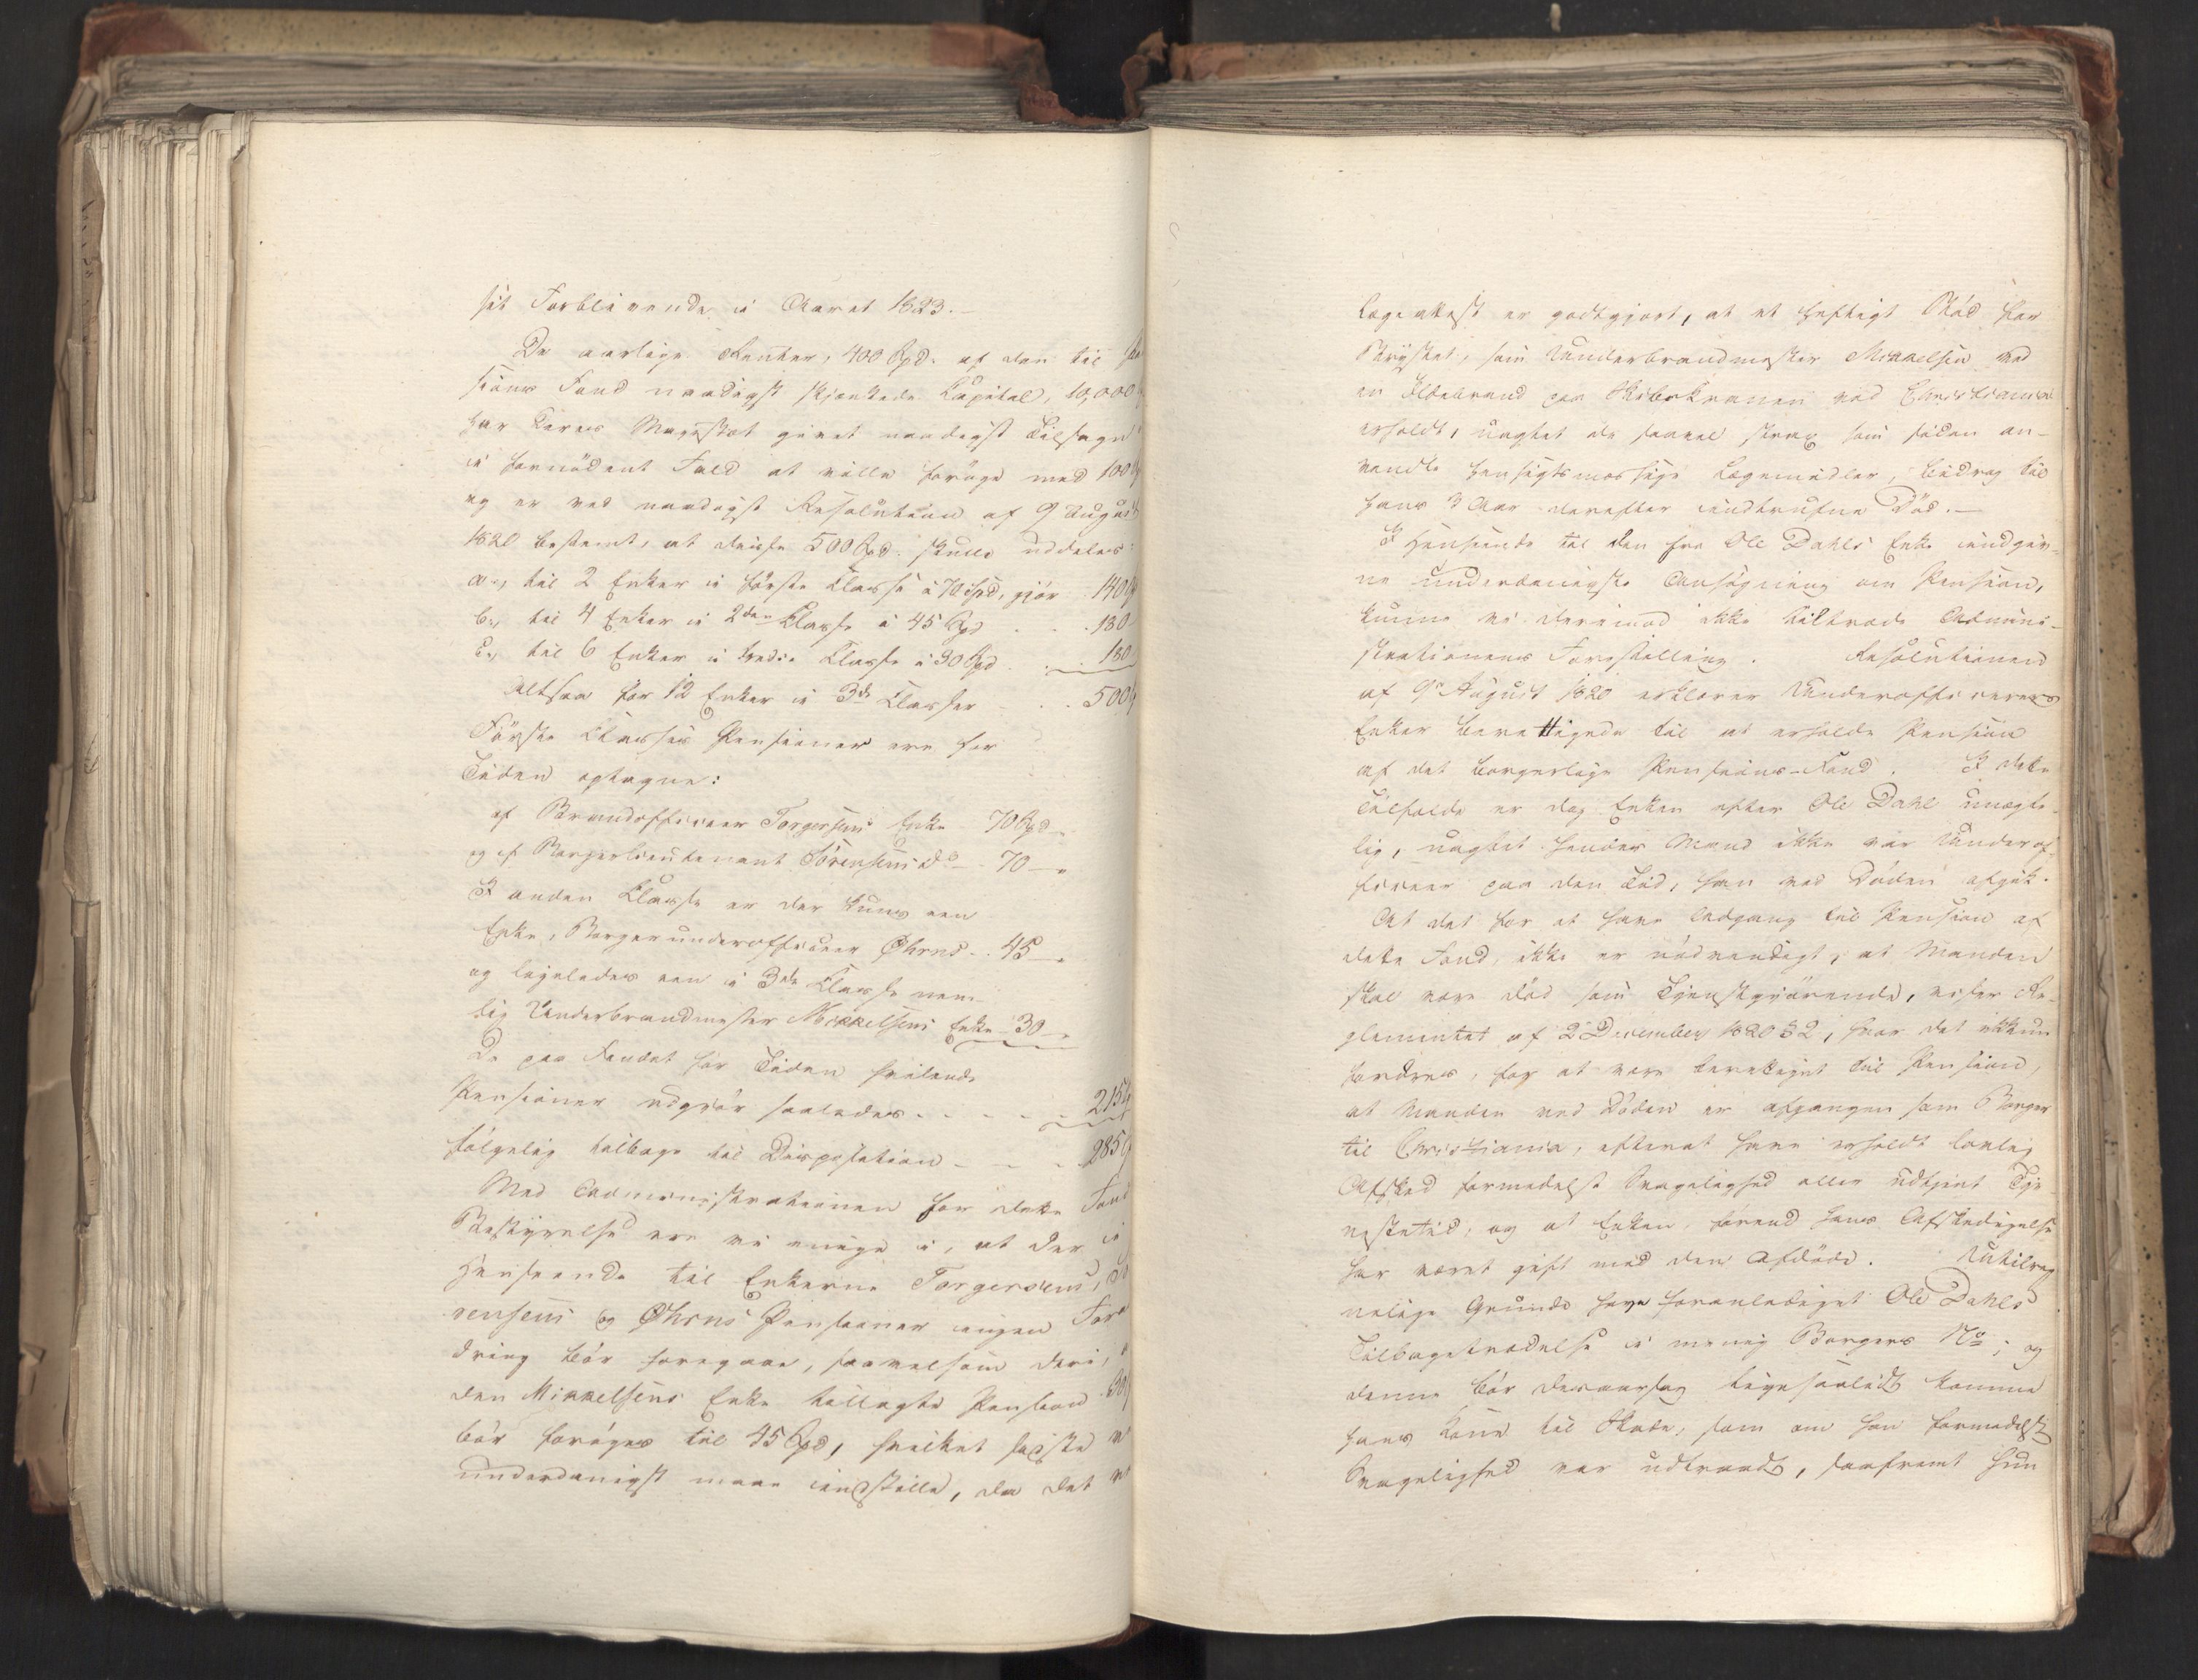 sit Forblivende i Aaret 1823.—
De aarlige Renter, 400 Spd. af den til
sions Fond naadigst skjænkede Capital, 10,000
har Deres Majestæt givet naadigst Tilsagn
i fornödent Fald at ville foröge med 100
og er ved naadigst Resolution af 9 August
1820 bestemt, at disse 500 Spd. skulle uddeles:
a., til 2 Enker i förste Classe à 70 Spd, gjör . 140
b., til 4 Enker i 2den Classe à 45 Spd . . . 180
c., til 6 Enker i tredie Classe à 30 Spd . . . 180
Altsaa for 12 Enker i 3de Classer - . . 500
Förste Classes Pensioner ere for
Tiden optagne:
af Brandofficeer Torgersens Enke 70 Spd
og af Borgerlieutenant Sörensens do - 70 —
I anden Classe er der kuns een
Enke, Borgerunderofficeer Øhrns - . 45 —
og ligeledes een i 3die Classe nem-
lig Underbrandmester Mikkelsens Enke 30 -
De paa Fondet for Tiden hvilende
Pensioner udgjör saaledes . - - - - 215
fölgelig tilbage til Disposition - - - 285
Med Administrationen for dette Fond
Bestyrelse ere vi enige i, at der i
Henseende til Enkerne Torgersens,
rensens og Øhrns Pensioner ingen For
dring bör foregaae, saavelsom deri,
den Mikkelsens Enke tillagte Pension 30
bör foröges til 45 Spd, hvilket sidste
underdanigst maae indstille, da det
Lægeattest er godtgjort, at et heftigt Stöd for
Brystet, som Underbrandmester Mikkelsen ved
en Ildebrand paa Skibskranen ved Christiania
erholdt, uagtet de saavel strax som siden an-
vendte hensigtsmæssige Lægemidler, bidrog til
hans 3 Aar derefter indtrufne Död.—
I Henseende til den fra Ole Dahls Enke indgiv-
ne underdanigste Ansögning om Pension,
kunne vi derimod ikke tiltræde Admini-
strationens Forestilling. Resolutionen
af 9de August 1820 erklærer Underofficerers
Enker berettigede til at erholde Pension
af det borgerlige Pensions-Fond. I dette
Tilfælde er dog Enken efter Ole Dahl unægte-
lig, uagtet hendes Mand ikke var Underof-
ficeer paa den Tid, han ved Döden afgik.
At det for at have Adgang til Pension af
dette Fond, ikke er nödvendigt, at Manden
skal være död som Tjenstgjörende, viser Re-
glementet af 2 December 1820 § 2, hvor det ikkun
fordres, for at være berettiget til Pension,
at Manden ved Döden er afgangen som Borger
til Christiania, efterat have erholdt lovlig
Afsked formedelst Svagelighed eller udtjent Tje-
nestetid, og at Enken, förend hans Afskedigelse
har været gift med den Afdöde. Utilreg
nelige Grunde have foranlediget Ole Dahls
Tilbagetrædelse i menig Borgers No; og
denne bör desaarsag ligesaalidt komme
hans Kone til Skade, som om han formedelst
Svagelighed var udtraadt, saafremt hun